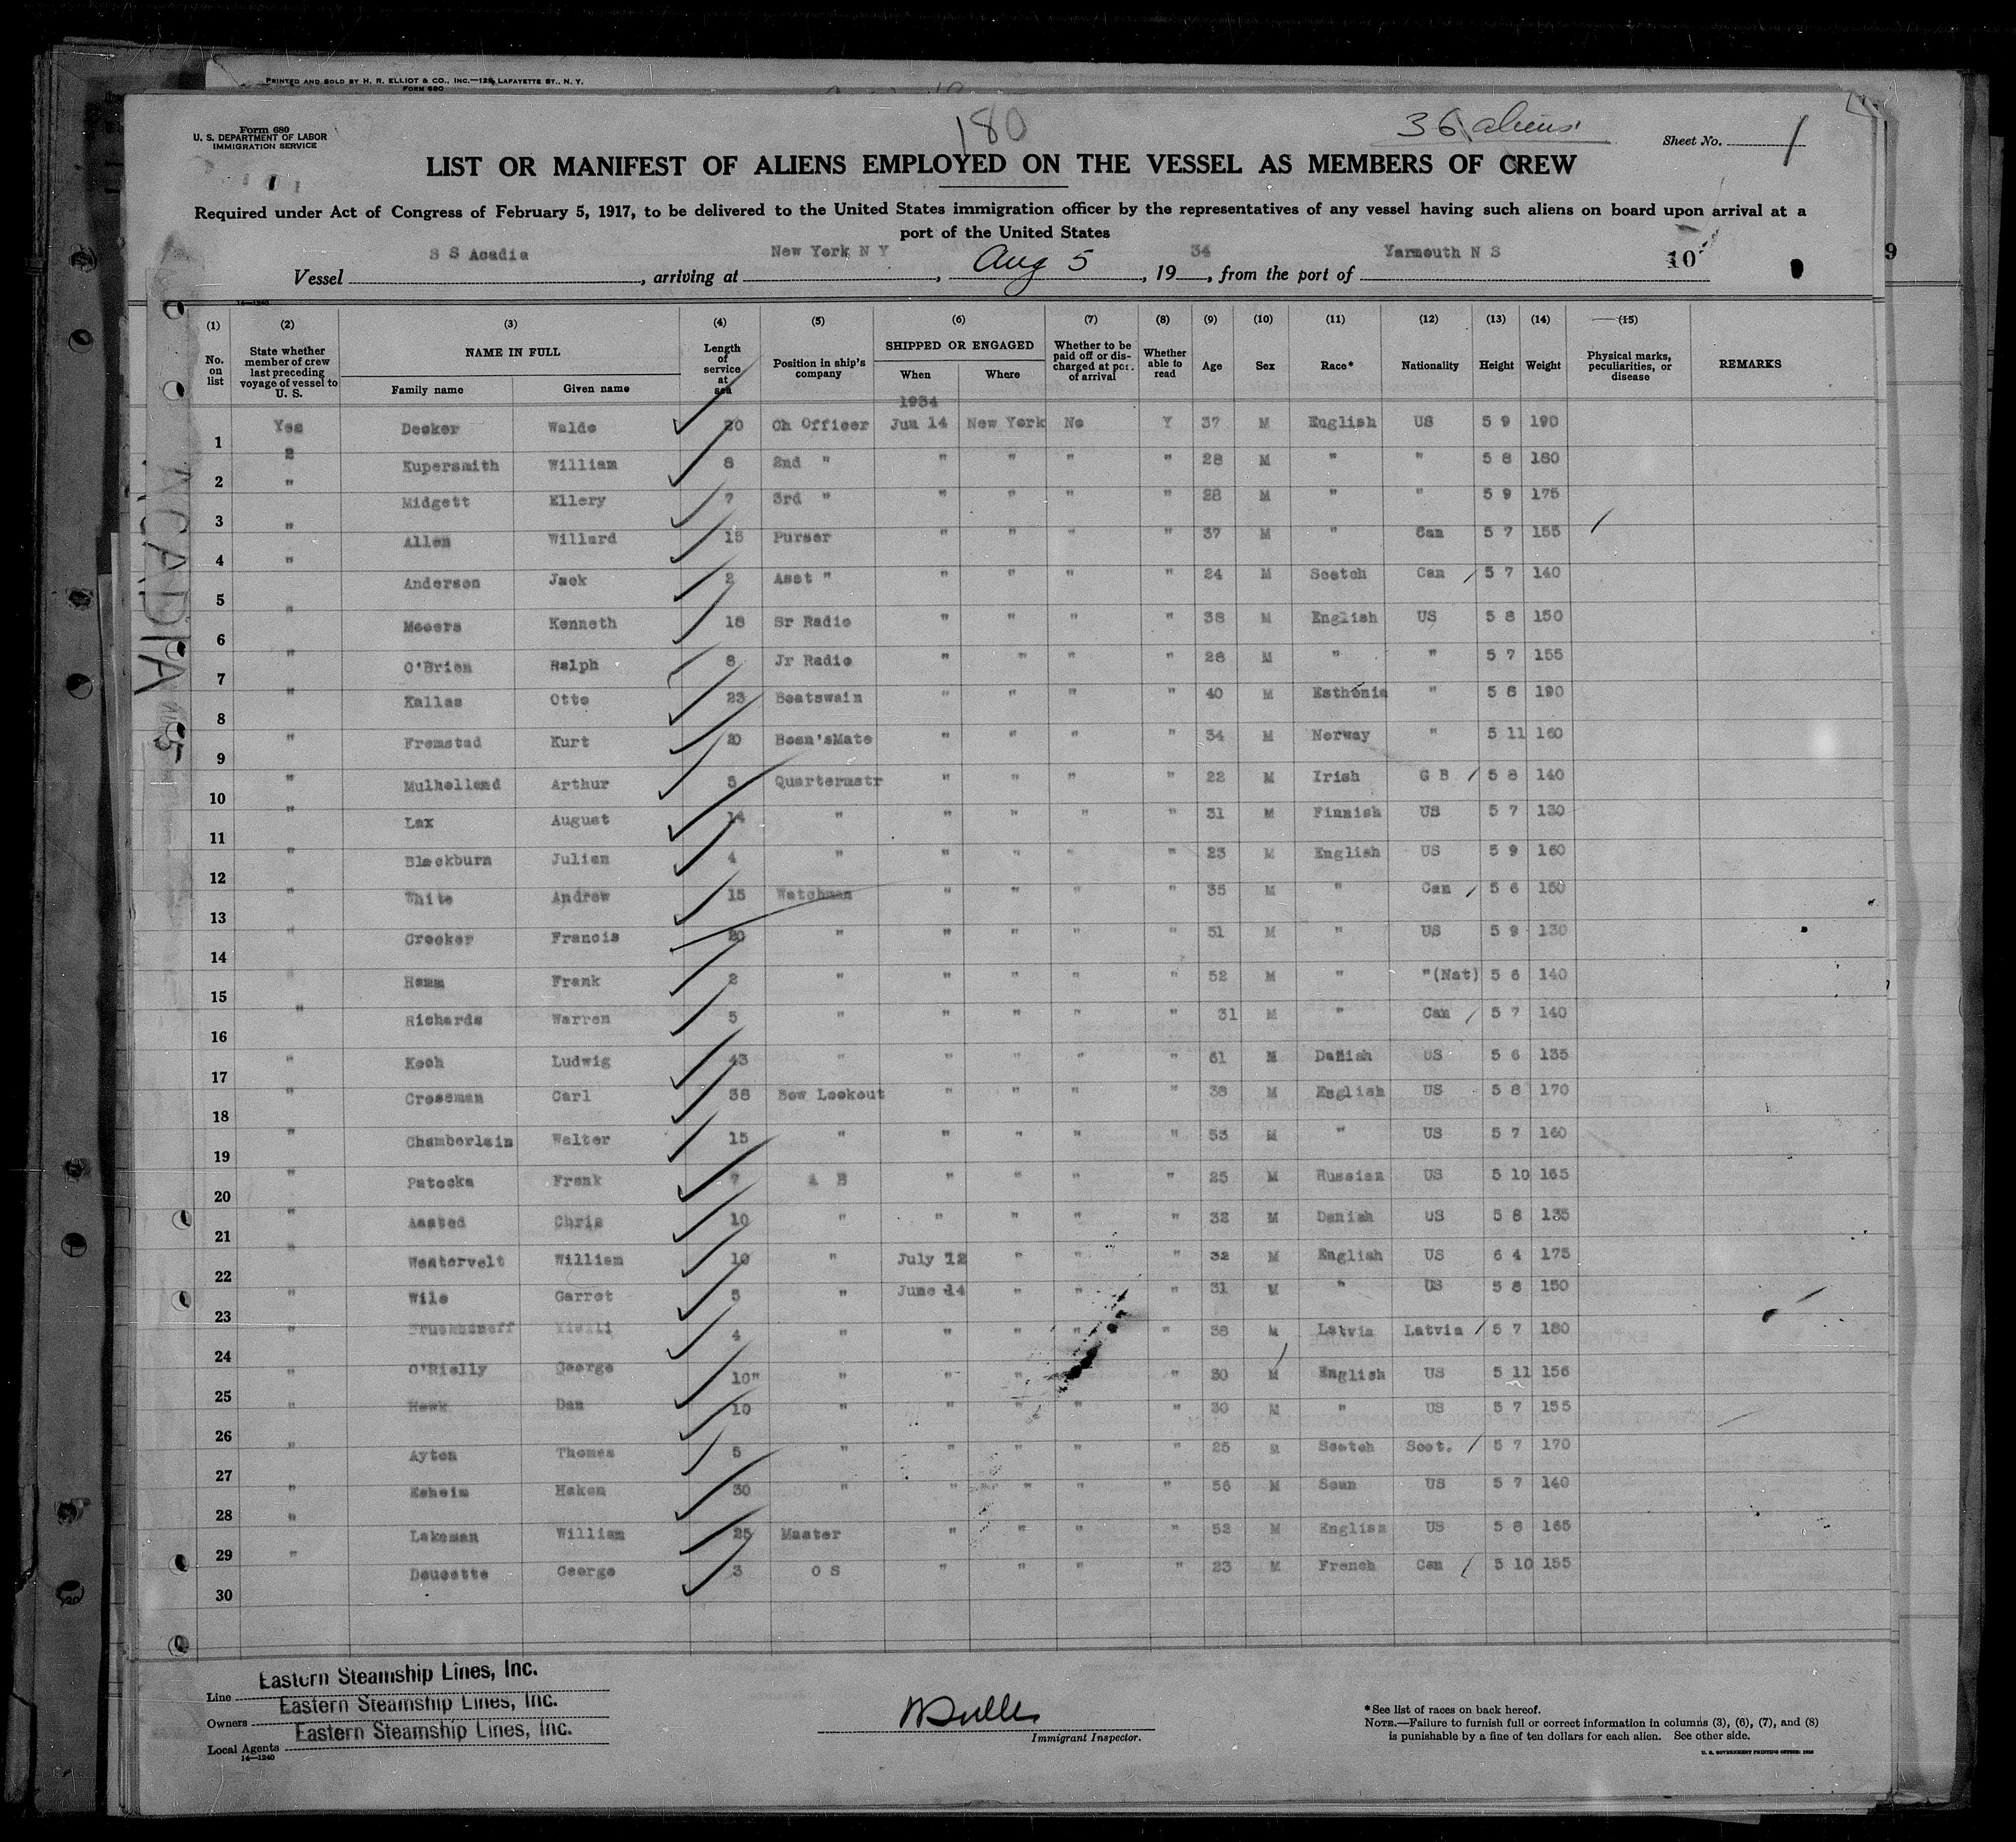 PRINTED AND SOLD BY H. R. ELLIOT & CO., INC.—129 LAFAYETTE ST., N. Y.
FORM 680
180
36 aliens
Form 680
U. S. DEPARTMENT OF LABOR
IMMIGRATION SERVICE
Sheet No. 1
LIST OR MANIFEST OF ALIENS EMPLOYED ON THE VESSEL AS MEMBERS OF CREW
Required under Act of Congress of February 5, 1917, to be delivered to the United States immigration officer by the representatives of any vessel having such aliens on board upon arrival at a
port of the United States
Vessel S S Acadia, arriving at New York N Y, Aug 5, 1934, from the port of Yarmouth N S 10
9
14—1240
(1) (2) (3) (4) (5) (6) (7) (8) (9) (10) (11) (12) (13) (14) (15)
No. on list State whether member of crew last preceding voyage of vessel to U. S. NAME IN FULL Family name Given name Length of service at sea Position in ship's company SHIPPED OR ENGAGED When Where Whether to be paid off or discharged at port of arrival Whether able to read Age Sex Race* Nationality Height Weight Physical marks, peculiarities, or disease REMARKS
1934
1 Yes Decker Waldo 20 Ch Officer Jun 14 New York No Y 37 M English US 5 9 190
2 " Kupersmith William 8 2nd " " " " " 28 M " " 5 8 180
3 " Midgett Ellery 7 3rd " " " " " 28 M " " 5 9 175
4 " Allen Willard 15 Purser " " " " 37 M " Can 5 7 155
5 " Anderson Jack 2 Asst " " " " " 24 M Scotch Can 5 7 140
6 " Mooers Kenneth 18 Sr Radio " " " " 38 M English US 5 8 150
7 " O'Brien Ralph 8 Jr Radio " " " " 28 M " " 5 7 155
8 " Kallas Otto 23 Boatswain " " " " 40 M Esthonia " 5 8 190
9 " Fromstad Kurt 20 Bosn'sMate " " " " 34 M Norway " 5 11 160
10 " Mulholland Arthur 5 Quartermstr " " " " 22 M Irish G B 5 8 140
11 " Lax August 14 " " " " " 31 M Finnish US 5 7 130
12 " Blackburn Julian 4 " " " " " 23 M English US 5 9 160
13 " White Andrew 15 Watchman " " " " 35 M " Can 5 6 150
14 " Crocker Francis 20 " " " " " 51 M " US 5 9 130
15 " Hamm Frank 2 " " " " " 52 M " "(Nat) 5 6 140
16 " Richards Warren 5 " " " " " 31 M " Can 5 7 140
17 " Koch Ludwig 43 " " " " " 61 M Danish US 5 6 135
18 " Crossman Carl 38 Bow Lookout " " " " 38 M English US 5 8 170
19 " Chamberlain Walter 15 " " " " " 53 M " US 5 7 160
20 " Patocka Frank 7 A B " " " " 25 M Russian US 5 10 165
21 " Aasted Chris 10 " " " " " 32 M Danish US 5 8 135
22 " Westervelt William 10 " July 12 " " " 32 M English US 6 4 175
23 " Wile Garret 5 " June 14 " " " 31 M " US 5 8 150
24 " 4 " " " " " 38 M Latvia Latvia 5 7 180
25 " O'Rielly George 10" " " " " 30 M English US 5 11 156
26 " Hawk Dan 10 " " " " " 30 M " US 5 7 155
27 " Ayton Thomas 5 " " " " " 25 M Scotch Scot. 5 7 170
28 " Esheim Haken 30 " " " " " 56 M Scan US 5 7 140
29 " Lakeman William 25 Master " " " " 52 M English US 5 8 165
30 " Doucette George 3 O S " " " " 23 M French Can 5 10 155
ACADIA
Line Eastern Steamship Lines, Inc.
Owners Eastern Steamship Lines, Inc.
Local Agents Eastern Steamship Lines, Inc.
14—1240
Immigrant Inspector.
*See list of races on back hereof.
NOTE.—Failure to furnish full or correct information in columns (3), (6), (7), and (8)
is punishable by a fine of ten dollars for each alien. See other side.
U. S. GOVERNMENT PRINTING OFFICE